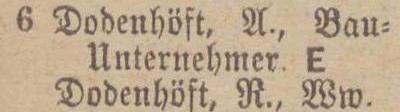 6 Dodenhöft, A., Bau=
Unternehmer. E
Dodenhöft, R., Ww.